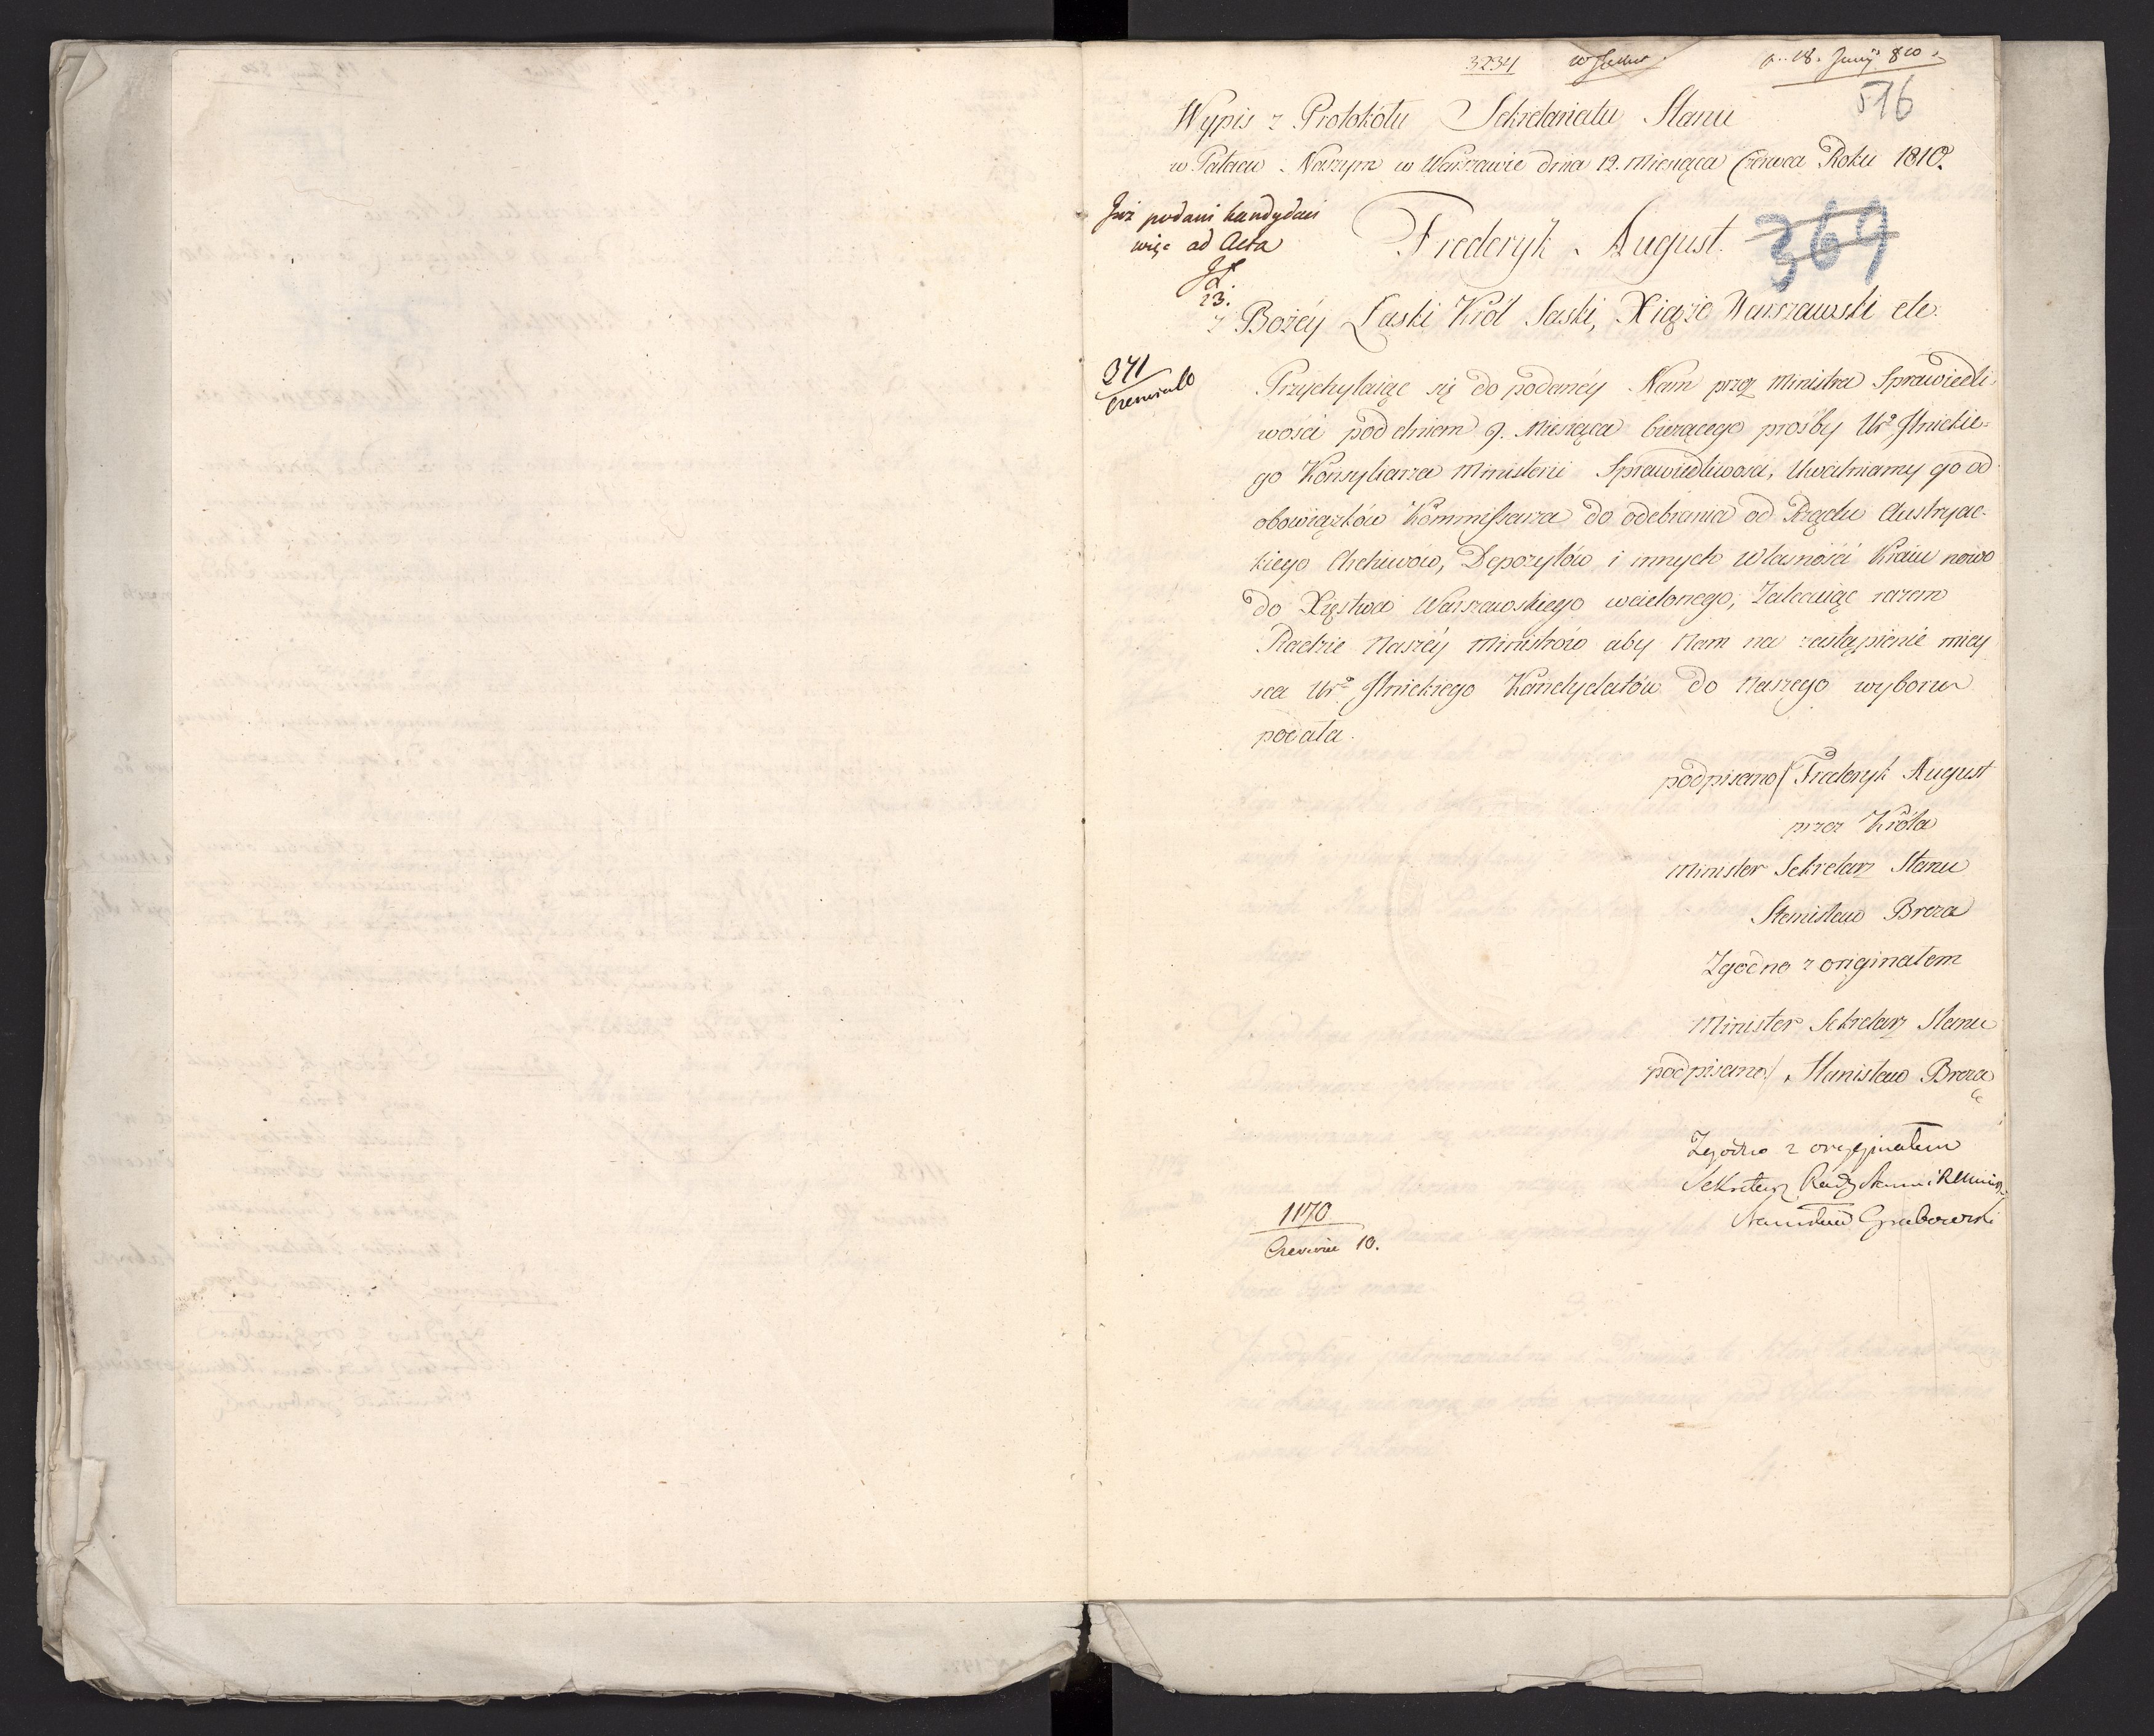 3234 p. 18. Junij 810.
516
Wypis z Protokółu Sekretariatu Stanu
w Pałacu Naszym w Warszawie dnia 12. miesiąca Czerwca Roku 1810.
Już podani kandydaci
więc ad Acta
23.
Fredryk August.
369
z Bożéy Łaski Król Saski, Xiąże Warszawski etc.
341
Przychylaiąc się do podanéy Nam przez Ministra Sprawiedli-
wości pod dniem 9. Miesiąca bieżącego prośby Uro
go Konsyliarza Ministerii Sprawiedliwości, Uwalniamy go od
obowiązków Kommissarza do odebrania od Rządu Austryac-
kiego Archiwów, Depozytów i innych własności Kraiu nowo
do Xięstwa Warszawskiego wcielonego, Zalecaiąc razem
Radzie Naszéy Ministrów aby Nam na zastąpienie miey
sca Uro Kandydatów do Naszego wyboru
podała.
podpisano/ Frederyk August
przez Króla
Minister Sekretarz Stanu
Stanisław Breza
Zgodno z originałem
Minister Sekretarz Stanu
podpisano/ Stanisław Breza
Zgodno z oryginałem
Sekretarz Rady Stanu i R Mini
Stanisław Grabowski
1170
Czerwiec 10.